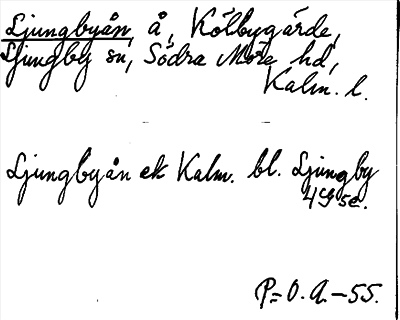 Ljungbyån, å, Kölbygärde,
Ljungby sn, Södra Möre hd,
Kalm. l.
Ljungbyån ek Kalm. bl. Ljungby
4G se.
P=O.A.-55.